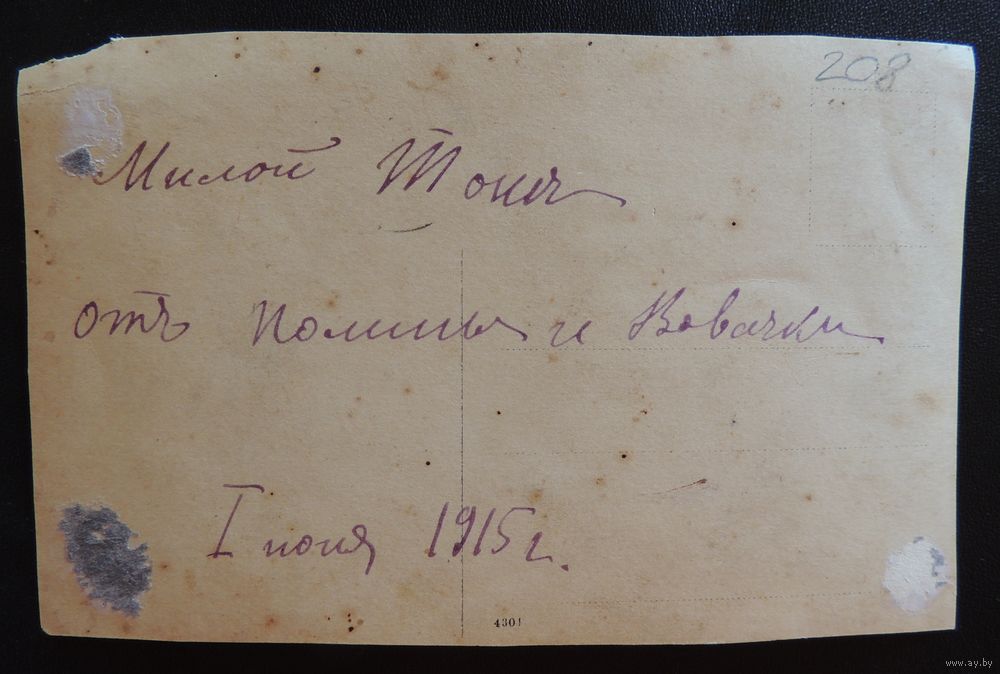 208
Милой Тонѣ
отъ Полины и Вовачки
I июня 1915 г.
4301
www.ay.by